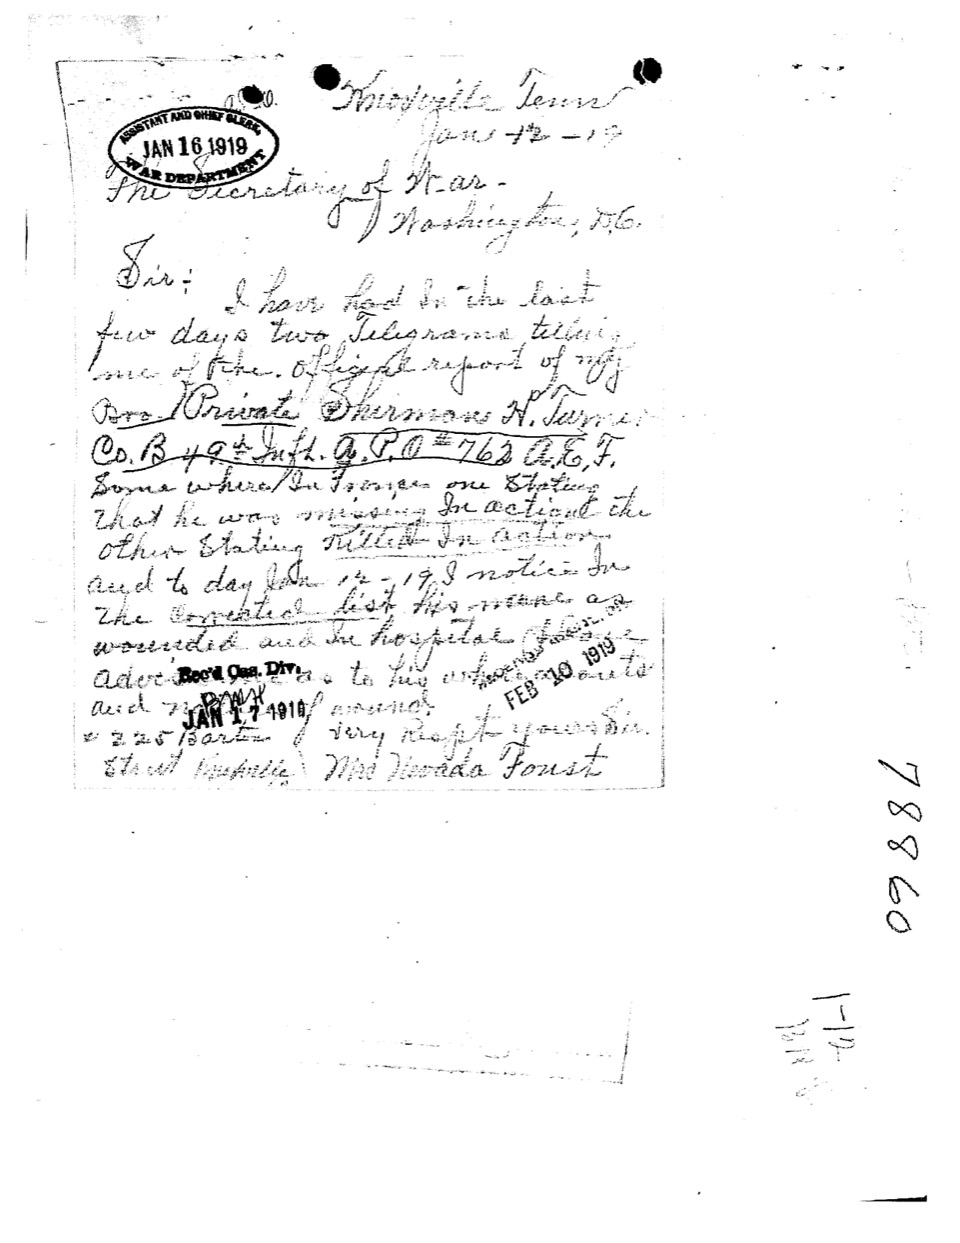 Knoxville Tenn
Jan 12 - 19
ASSISTANT AND CHIEF CLERK,
JAN 16 1919
WAR DEPARTMENT
The Secretary of War -
Washington, D.C.
Sir:
I have had In the last
few days two Telegrams telling
me of the. official report of my
Bro. Private Sherman H. Turner
Co. B 49th Inft. A.P.O # 762 A.E.F.
Some where In France one Stating
that he was missing In action the
other Stating Killed In action
and to day Jan 12 - 19 I notice In
the Corrected list his name as
wounded and In hospital Please
as to his whereabouts
and of wound.
Rec'd Cas. Div.
JAN 17 1919
FEB 10 1919
# 225 Very Respt yours Sir.
Street Knoxville Mrs Nevada Foust
78860